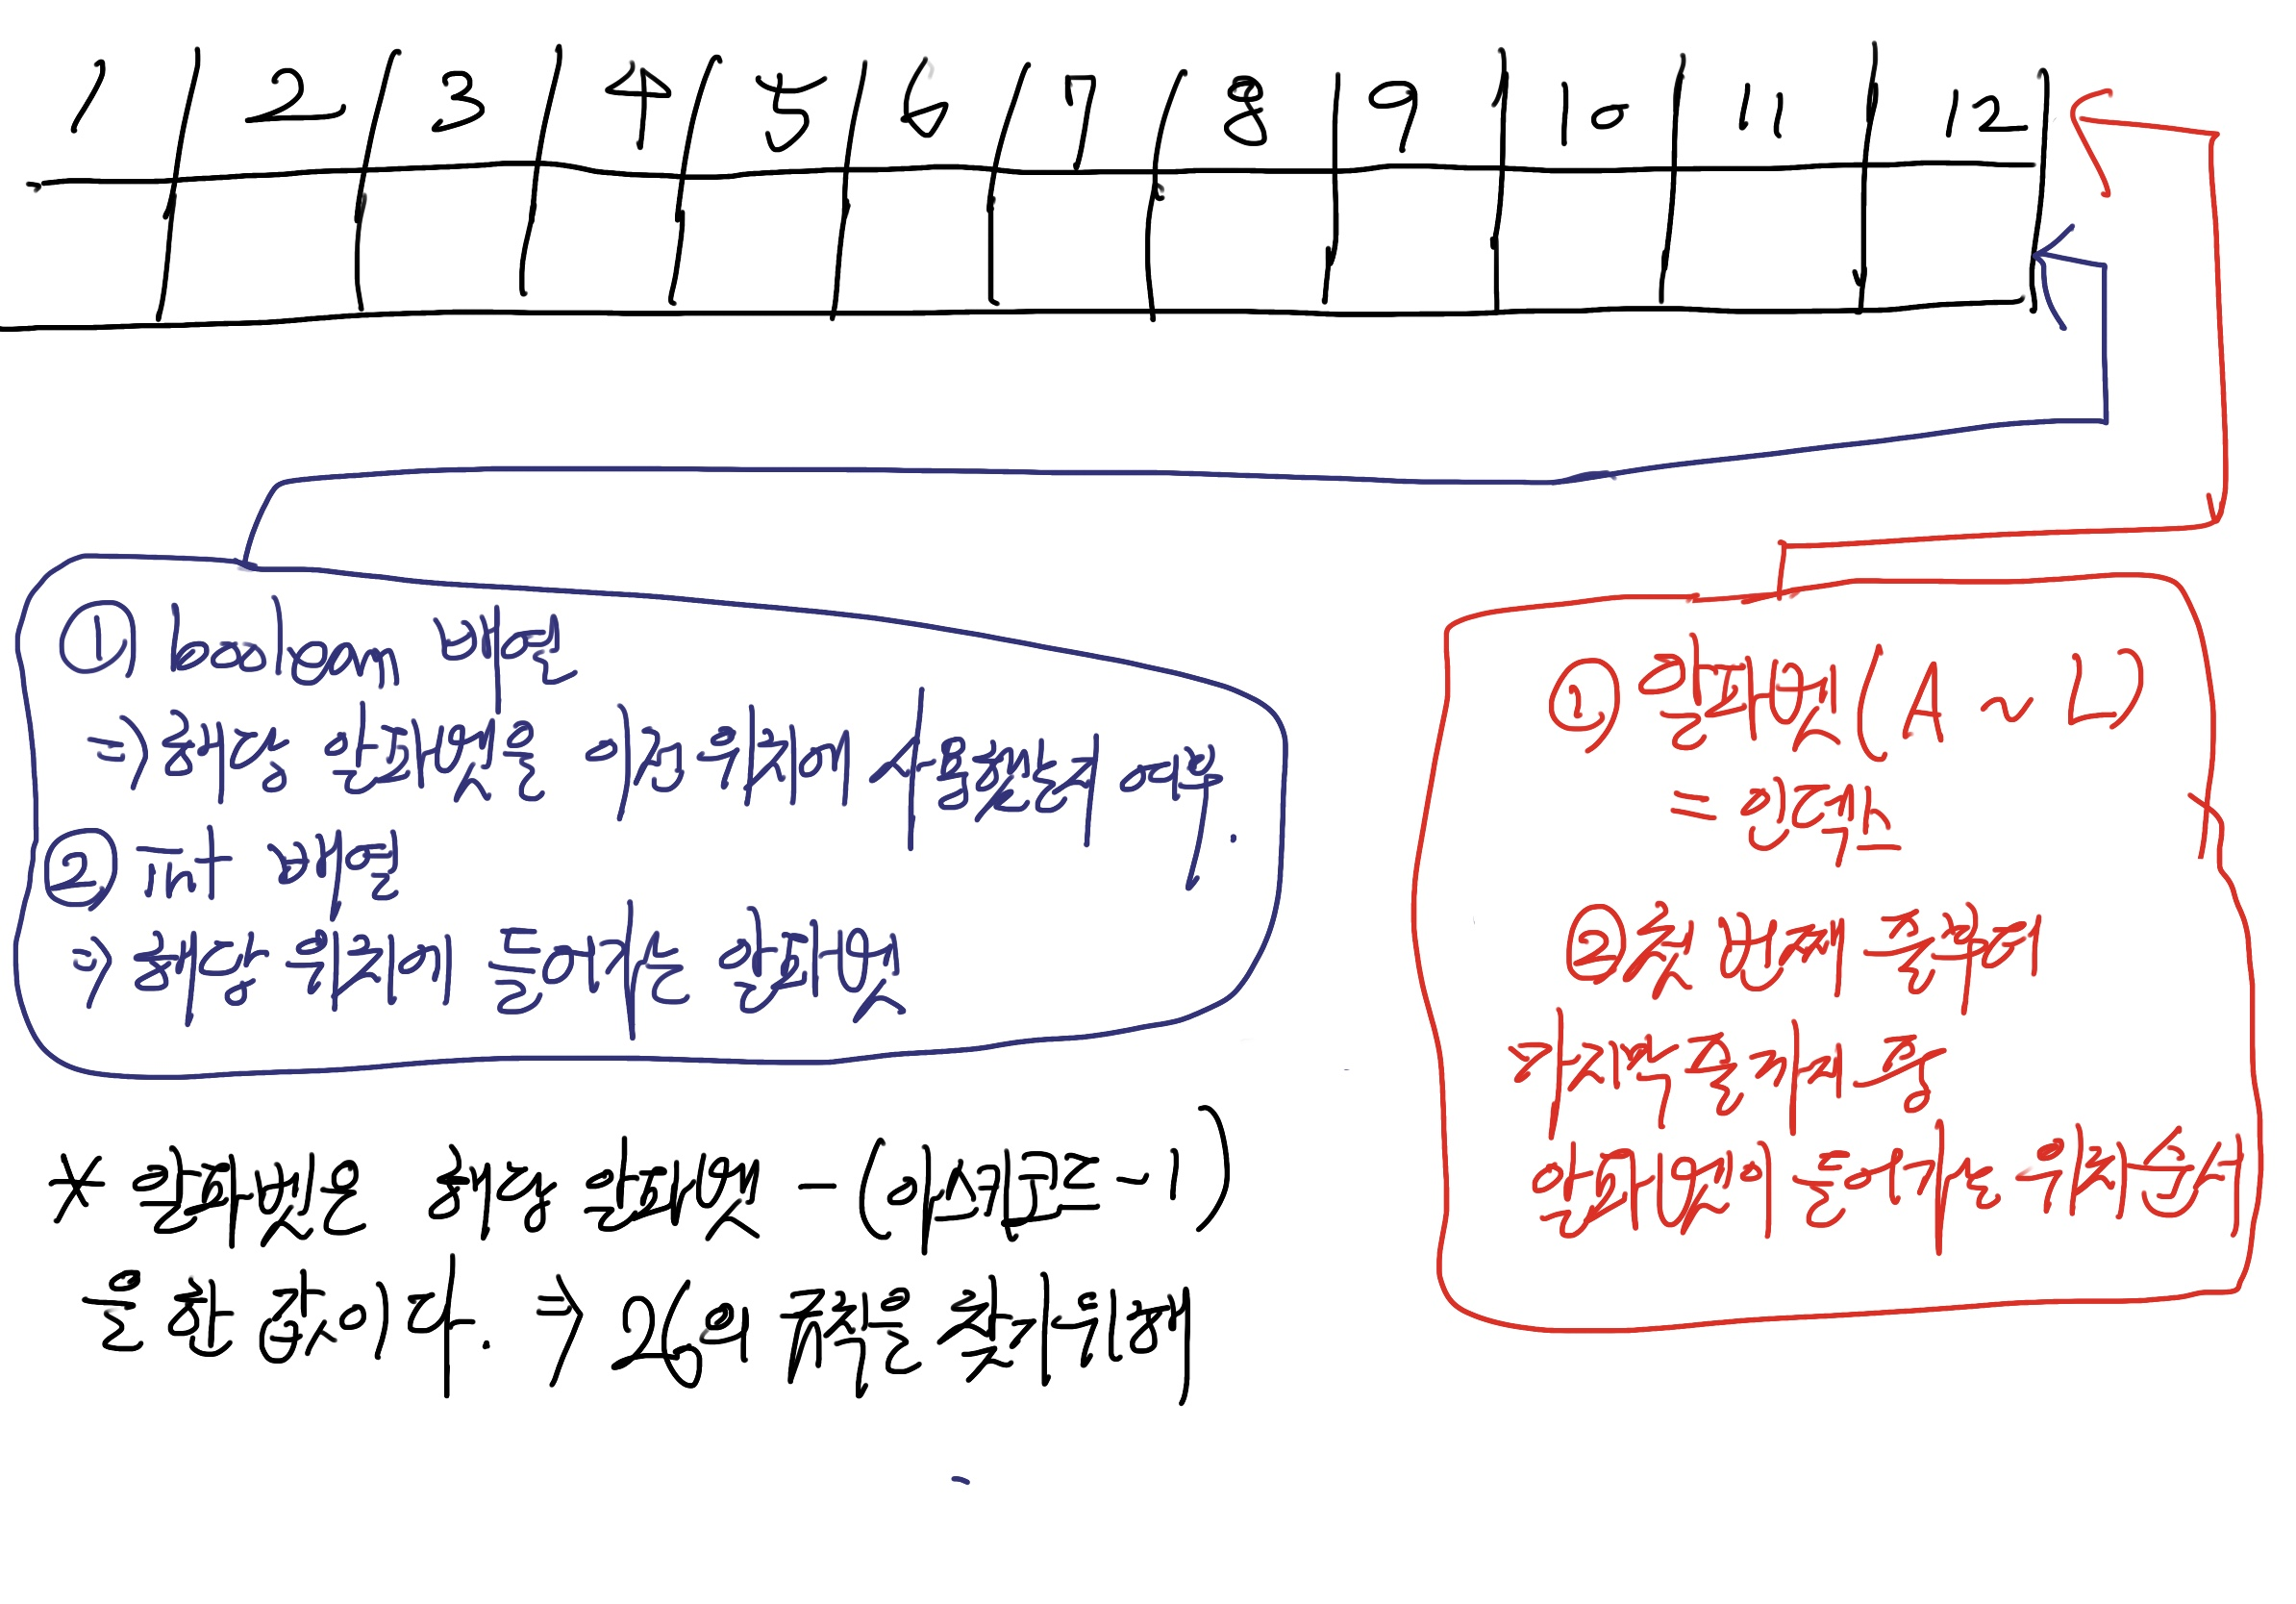 1 2 3 4 5 6 7 8 9 10 11 12
① boolean 배열
⇒ 해당 알파벳을 이전 위치에 사용했는지 여부.
② int 배열
⇒ 해당 위치에 들어가는 알파벳
① 알파벳(A ~ L)
= 인덱스
② 첫 번째 줄부터
마지막 줄까지 중
알파벳이 들어가는 위치 순서
* 알파벳은 해당 알파벳 - (아스키코드 - 1)
을 한 값이다. ⇒ 26의 규칙을 찾기 위해